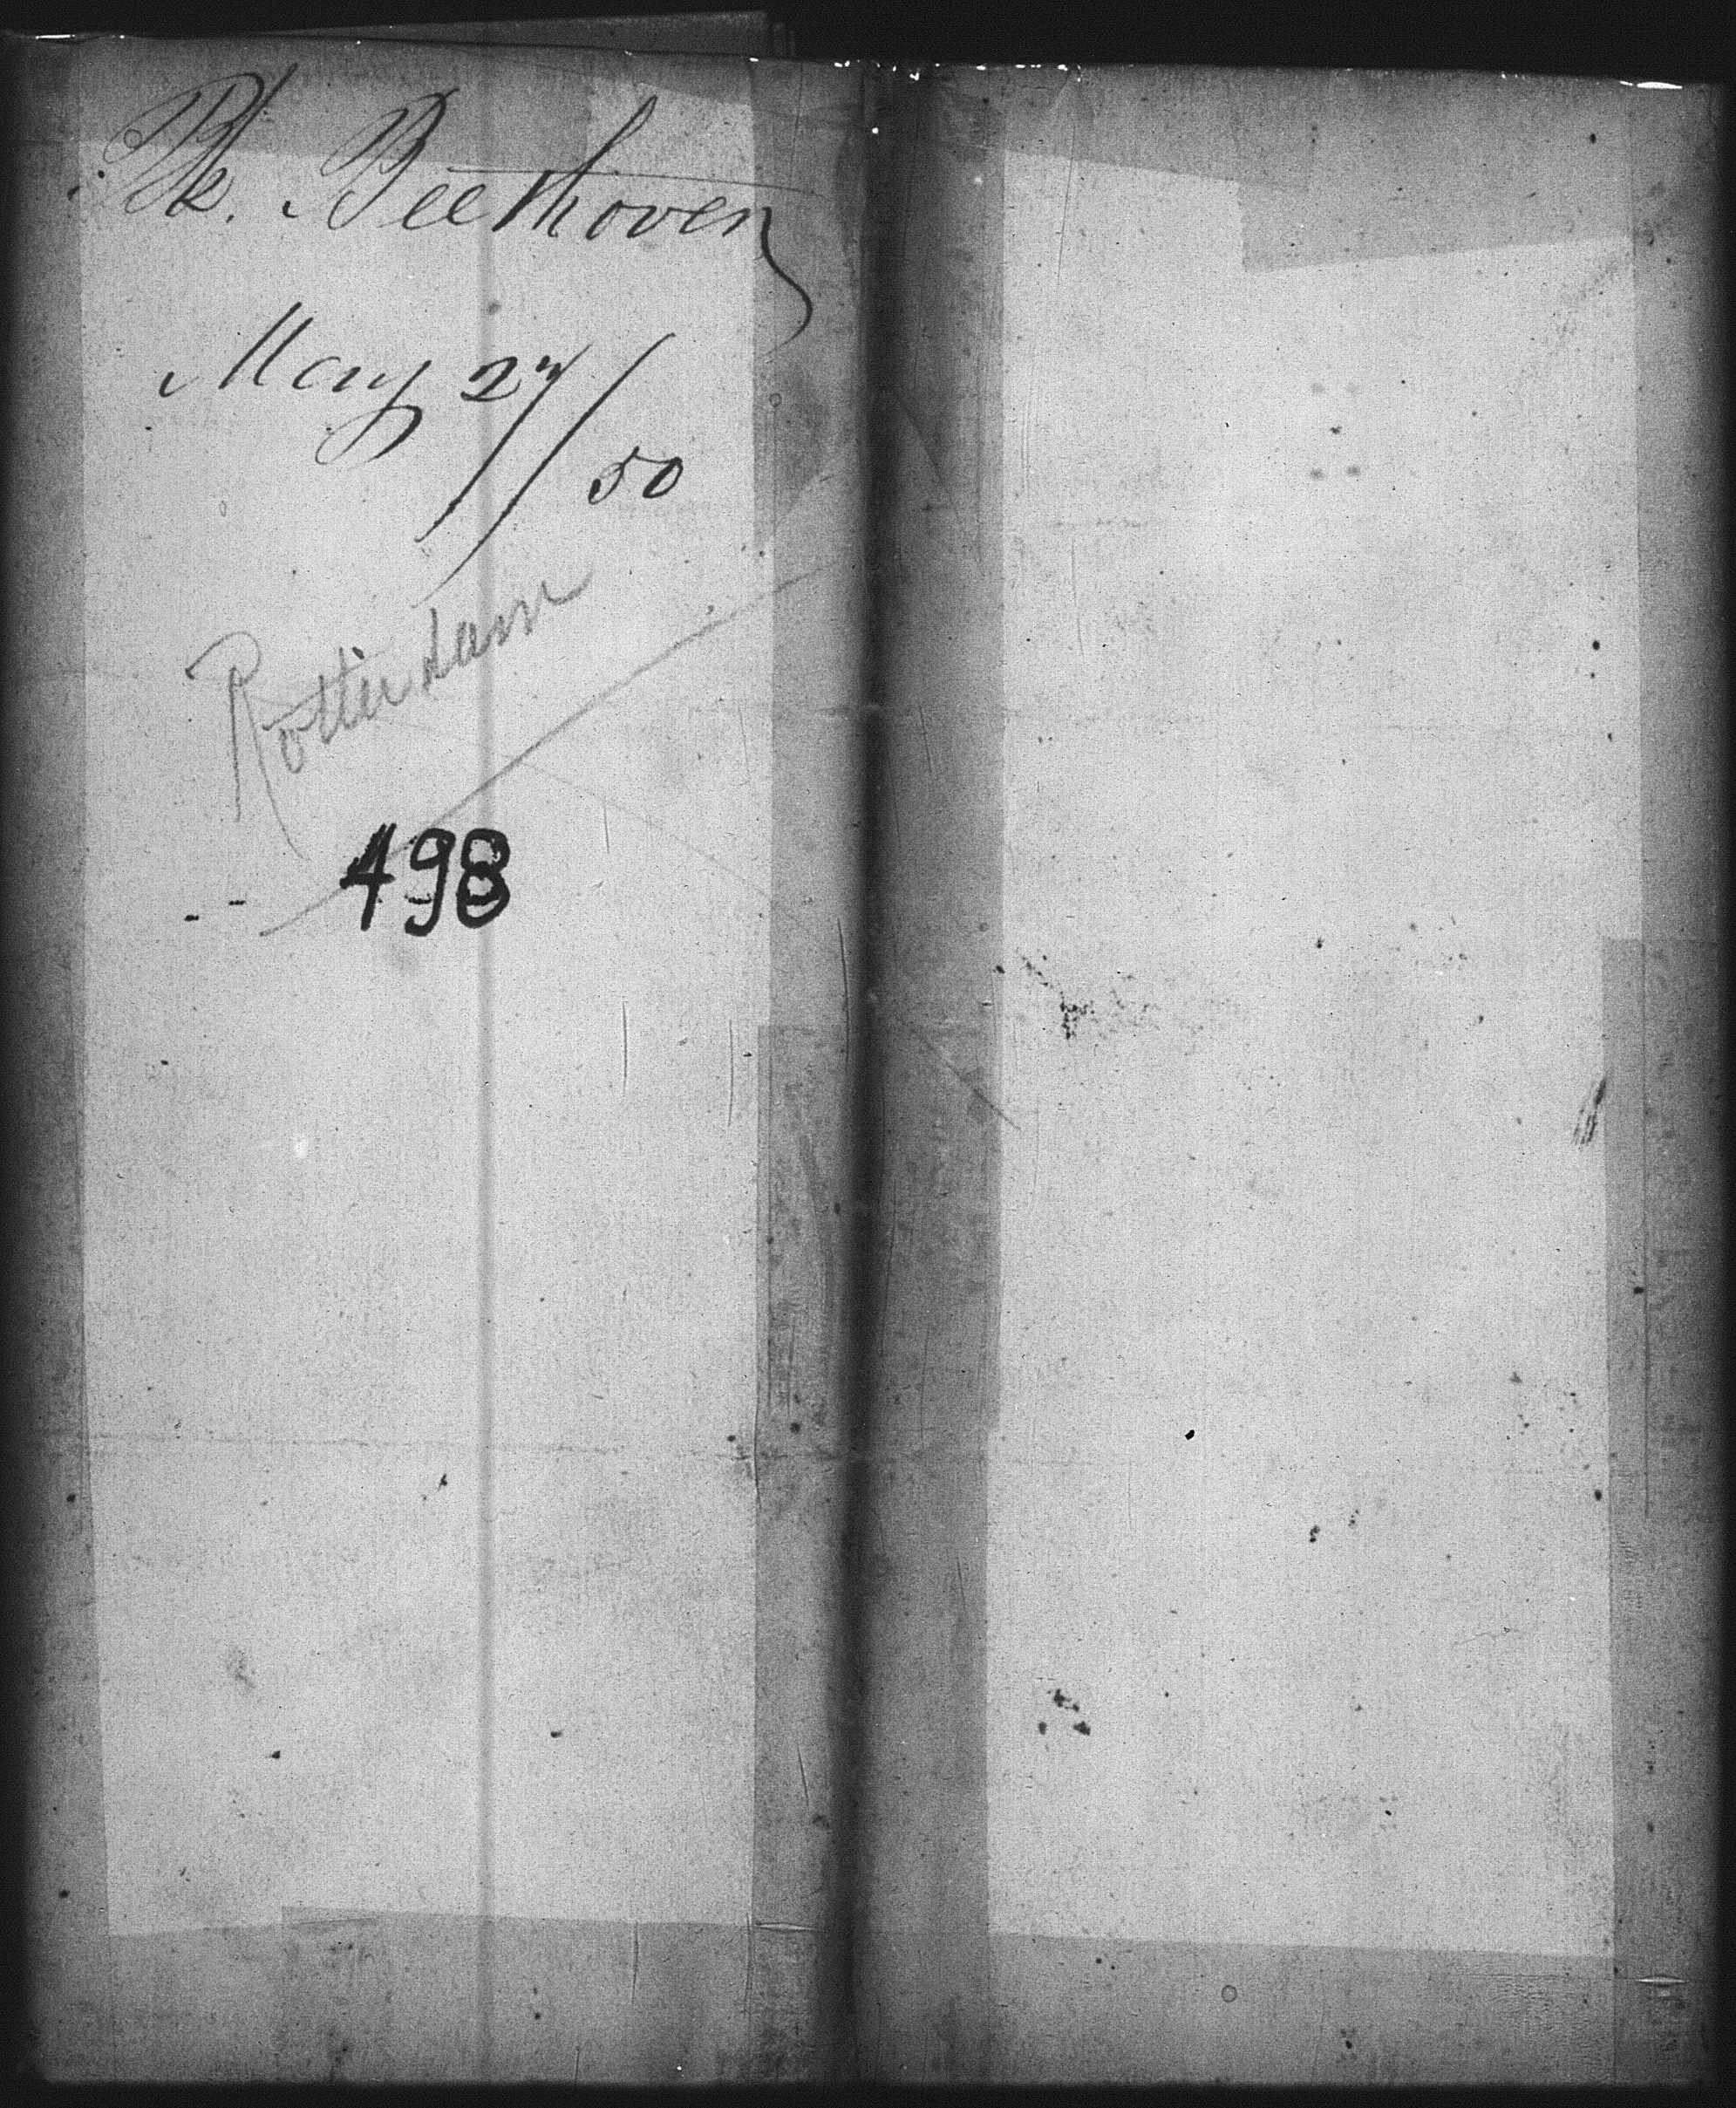 Bk. Beethoven
May 27/50
Rotterdam
498